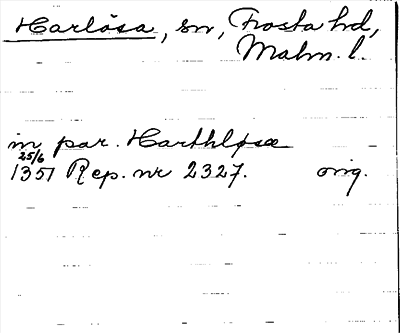 Harlösa, sn, Frosta hd,
Malm. l.
in par. Harthløsæ
25/6
1351 Rep. nr 2327. orig.